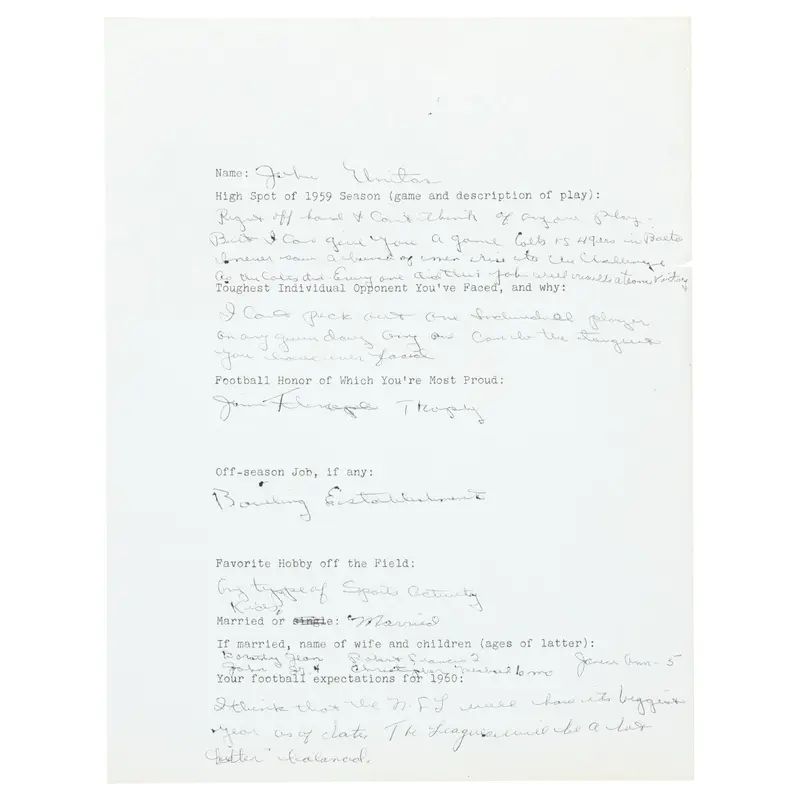 Name: John Unitas
High Spot of 1959 Season (game and description of play):
Right off hand I Can't think of any one play.
But I Can give you a game Colts vs 49ers in Balto
I never saw a bunch of men rise to the Challenge
As the Colts did Every one did their job well
Toughest Individual Opponent You've Faced, and why:
I Can't pick out one Individual player
on any given day any one Can be the toughest
you have ever faced
Football Honor of Which You're Most Proud:
Jim Thorpe Trophy
Off-season Job, if any:
Bowling Establishment
Favorite Hobby off the Field:
Any type of Sports Activity
Kids
Married or single: Married
If married, name of wife and children (ages of latter):
Dorothy Jean Robert Francis 2 Janice Ann - 5
John Jr 4 Christopher 6 mo
Your football expectations for 1960:
I think that the N.F.L will have its biggest
year as of date. The League will be a lot
better balanced.